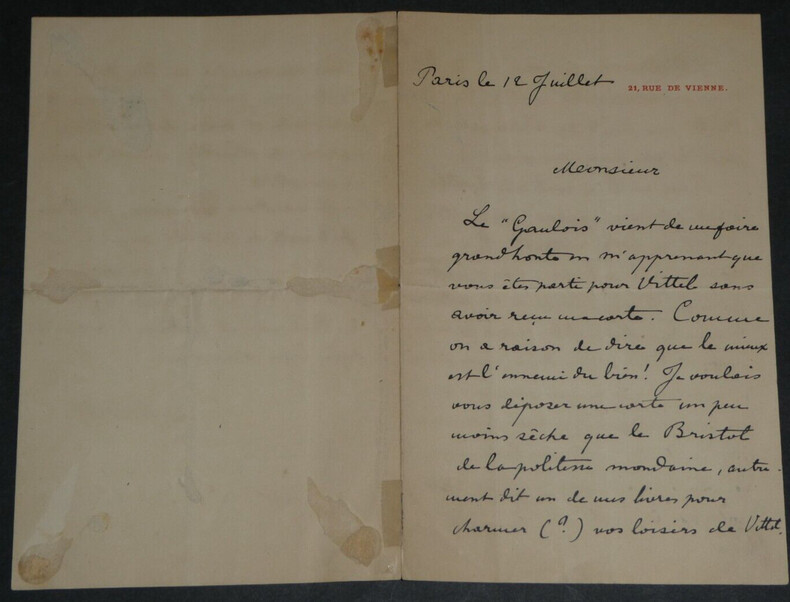 Paris le 12 Juillet
21, RUE DE VIENNE.
Monsieur
Le "Gaulois" vient de me faire
grand honte en m'apprenant que
vous êtes parti pour Vittel sans
avoir reçu ma carte. Comme
on a raison de dire que le mieux
est l'ennemi du bien! Je voulais
vous déposer une carte un peu
moins sèche que le Bristol
de la politesse mondaine, autre-
ment dit un de mes livres pour
charmer (?) vos loisirs de Vittel.